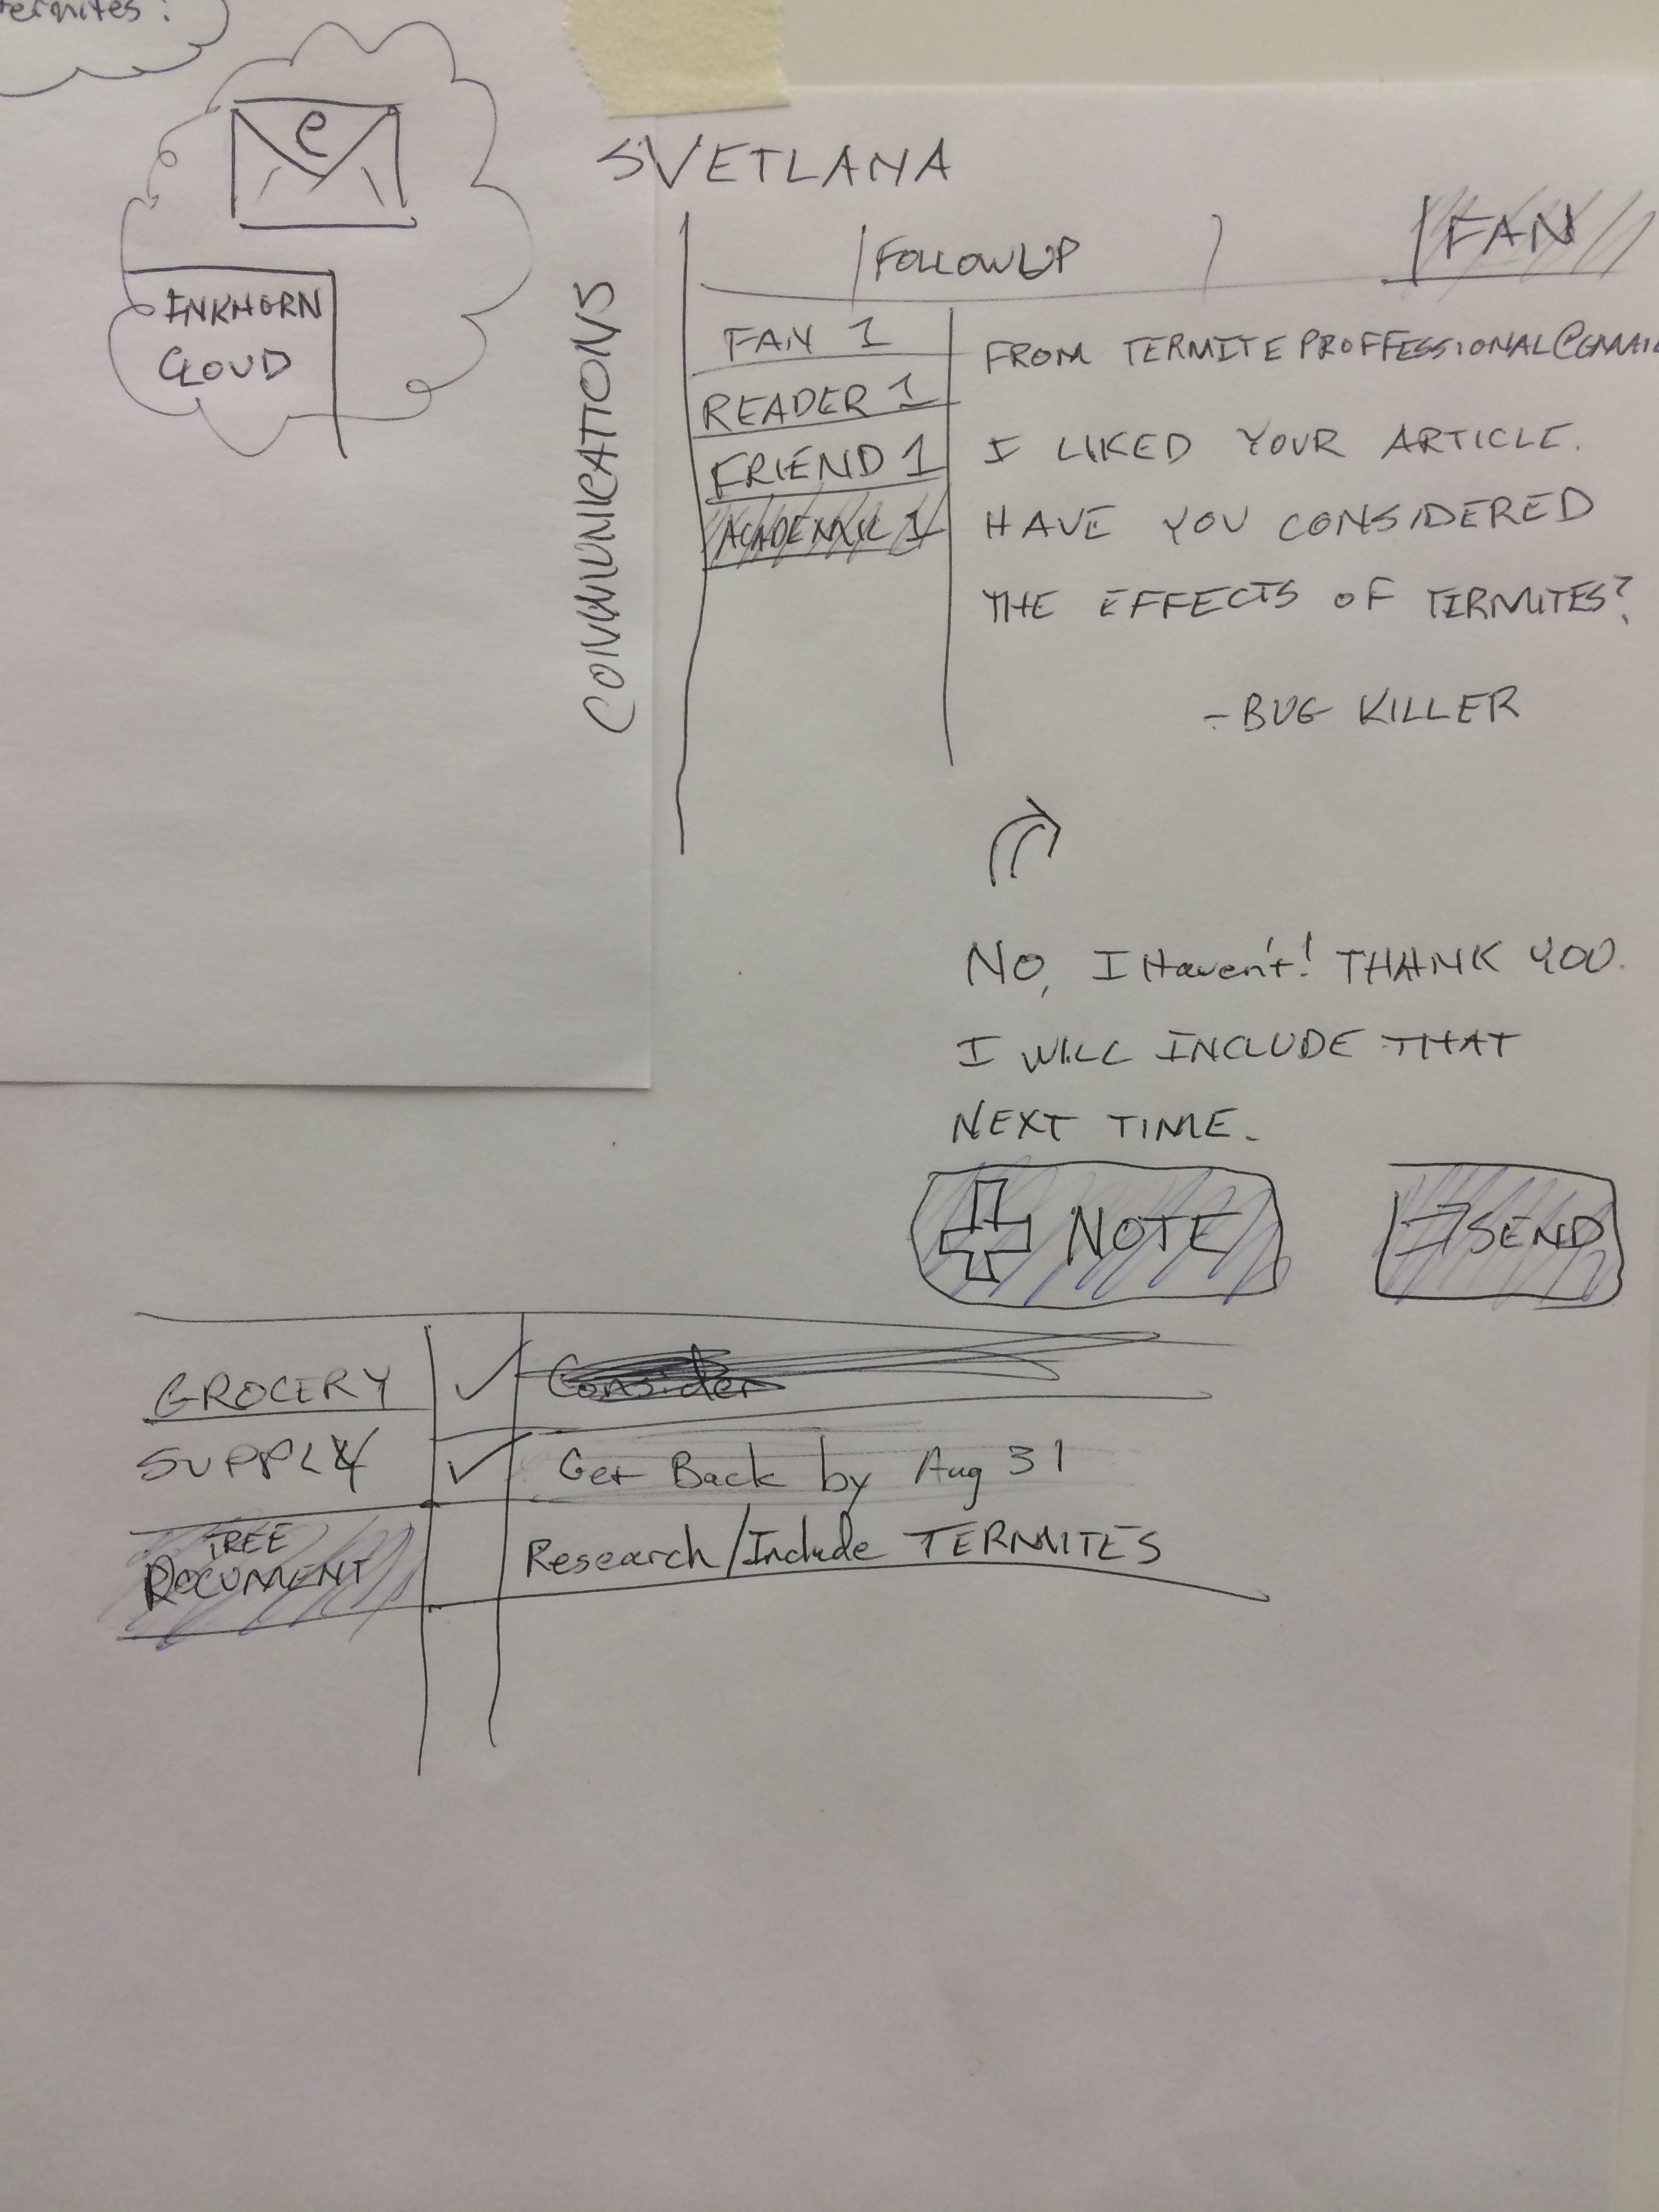 ermites?
e
INKHORN
CLOUD
SVETLANA
COMMUNICATIONS
FOLLOWUP
FAN
FAN 1
READER 1
FRIEND 1
ACADEMIC 1
FROM TERMITE PROFFESSIONAL@GMAI
I LIKED YOUR ARTICLE.
HAVE YOU CONSIDERED
THE EFFECTS OF TERMITES?
-BUG KILLER
NO, I Haven't! THANK YOU.
I WILL INCLUDE THAT
NEXT TIME.
NOTE
SEND
GROCERY ✓ Consider
SUPPLY ✓ Get Back by Aug 31
TREE
DOCUMENT Research/Include TERMITES